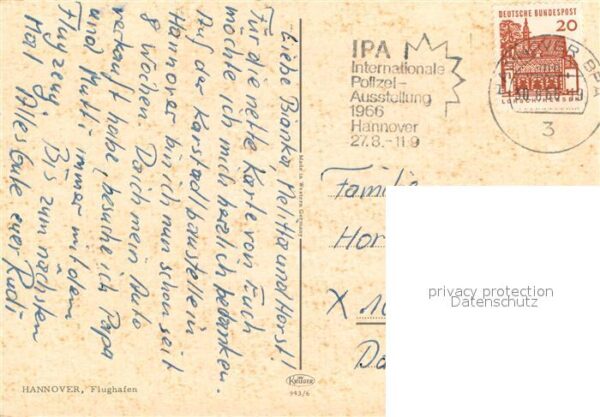 Liebe Bianka, Melitta und Horst!
Für die nette Karte von Euch
möchte ich mich herzlich bedanken.
Auf der Karstadtbaustelle in
Hannover bin ich nun schon seit
8 Wochen. Da ich mein Auto
verkauft habe, besuche ich Papa
und Mutti immer mit dem
Flugzeug. Bis zum nächsten
Mal Alles Gute euer Rudi
HANNOVER, Flughafen
Made in Western Germany
Krüger
943/6
IPA
Internationale
Polizei-
Ausstellung
1966
Hannover
27.8.-11.9
DEUTSCHE BUNDESPOST
20
3
Familie
Hor
X
Da
privacy protection
Datenschutz